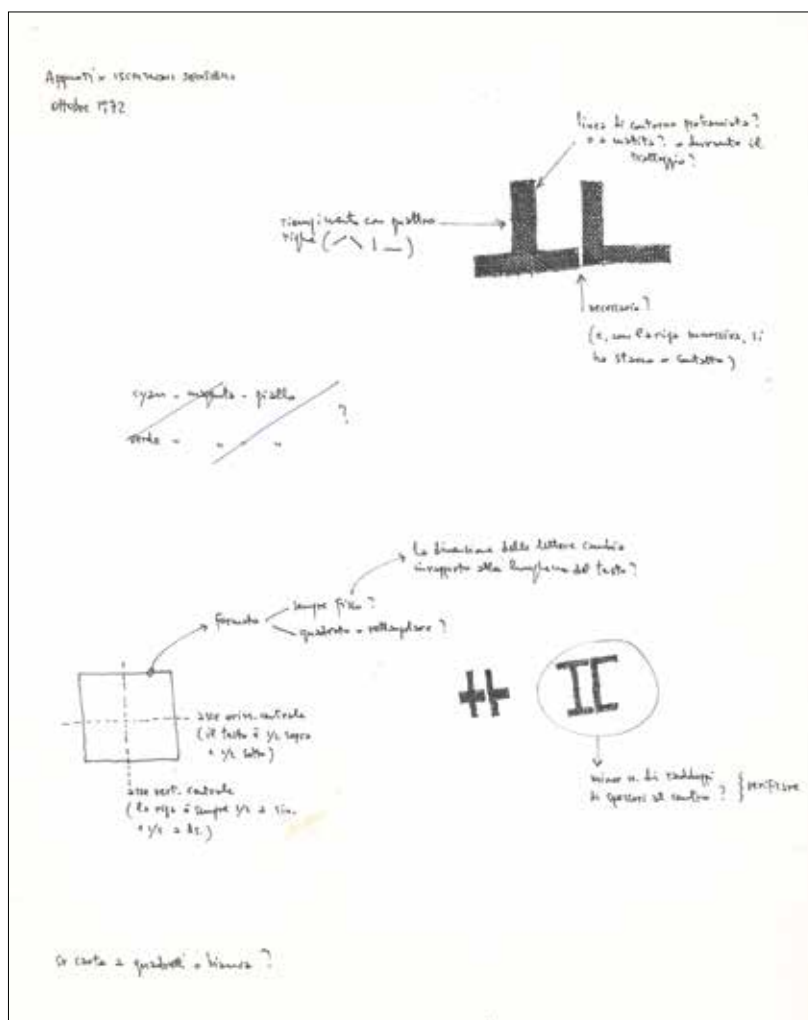 Appunti x iscrizioni
ottobre 1972
linea di contorno
o a matita? o durante il
tratteggio?
riempimento con quattro
righe
necessario?
(o, con la riga successiva, si
ha stacco o contatto)
cyan - magenta - giallo
verde - " - "
?
la dimensione delle lettere cambia
in rapporto alla lunghezza del testo?
formato
sempre fisso?
quadrato o rettangolare?
asse orizz. centrale
(il testo è 1/2 sopra
e 1/2 sotto)
asse vert. centrale
(la riga è sempre 1/2 a sin.
e 1/2 a ds.)
minor n. di raddoppi
di spessori al centro? } verificare
su carta a quadretti o bianca?